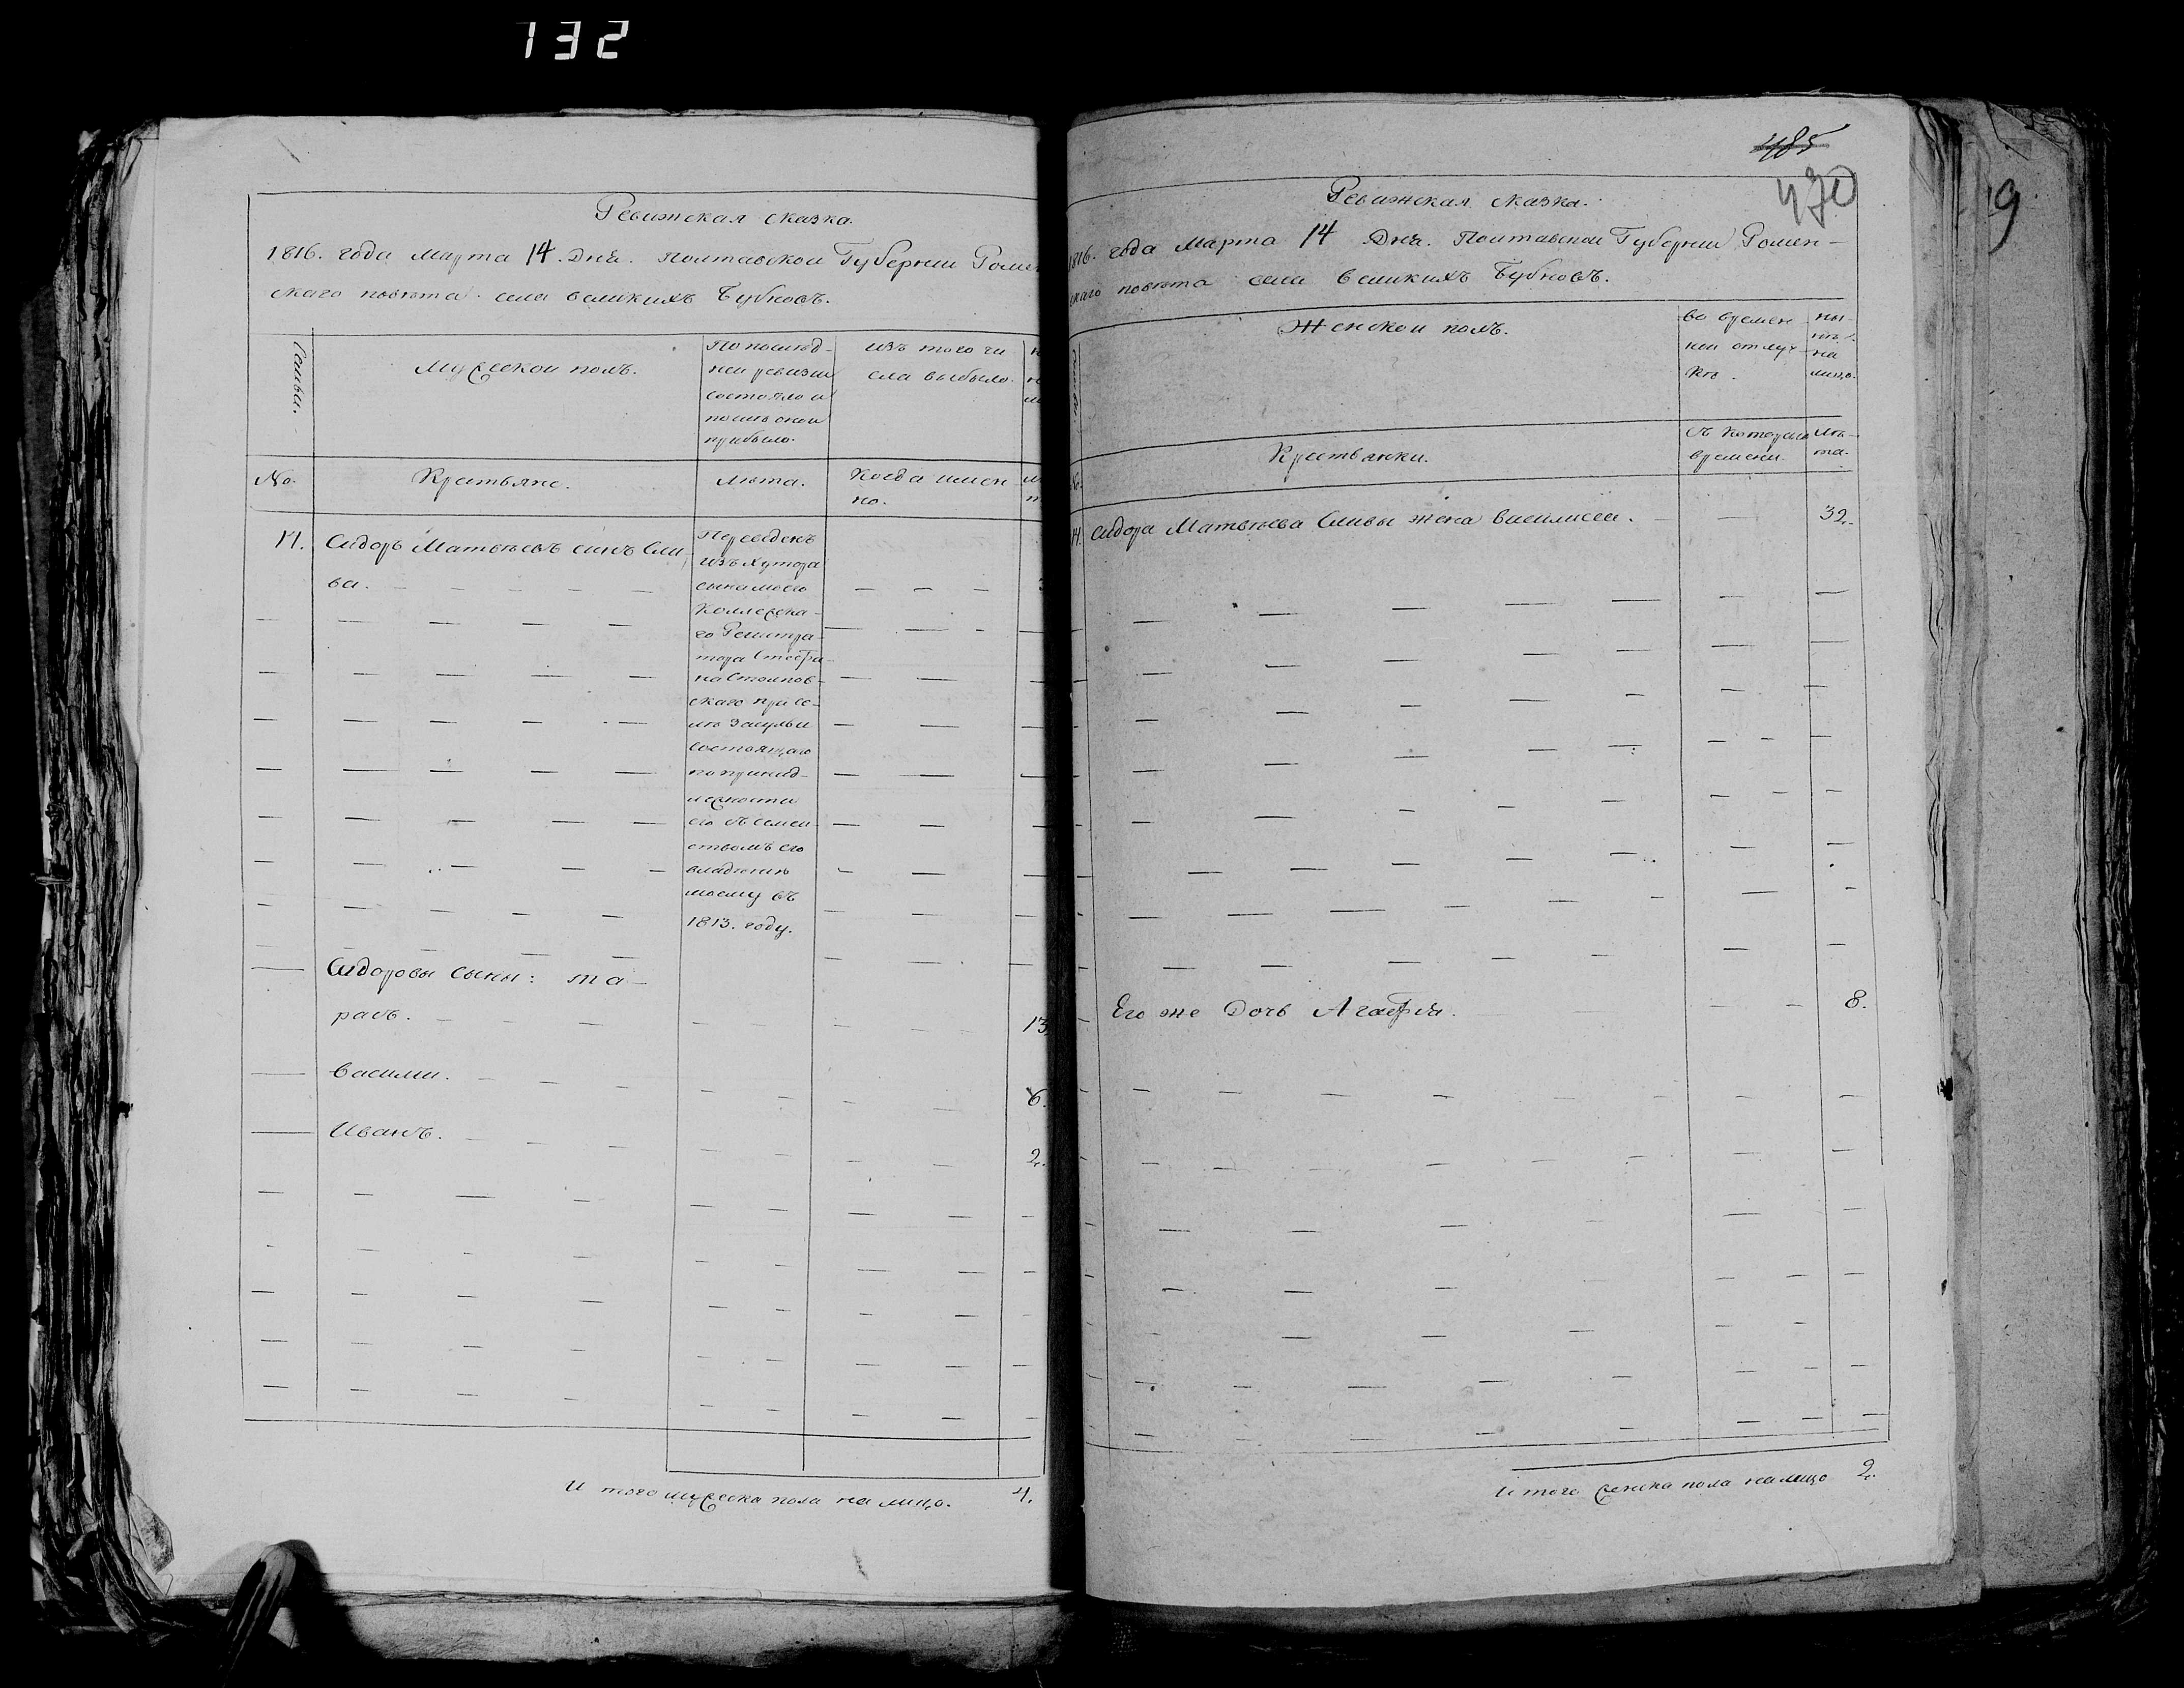 132
Ревижская сказка.
1816. года Марта 14. Дня. Полтавской Губернии Ромен
скаго повѣта села великихъ Бубновъ.
Семьи.
Мужеской полъ.
По послѣд-
ней ревизіи
состояло и
послѣ оной
прибыло.
изъ того чи
сла выбыло.
No.
Крестьяне.
Лѣта.
Когда имен
но.
14. Сидоръ Матвѣевъ синъ Сли
ва.
Переведенъ
изъ хутора
сына моего
Коллежска-
го Регистра-
тора Стефа-
на Стомпов-
скаго при се-
лѣ Засульи
состоящаго
по принад-
лежности
его съ семей-
ствомъ его
владѣнию
моему въ
1813. году.
Сидоровы сыны: та-
расъ. 13.
Василий. 6.
Иванъ. 2.
И того мужеска пола на лицо. 4.
485
470
9
Ревижская сказка.
1816. года Марта 14 Дня. Полтавской Губернии Ромен-
скаго повѣта села великихъ Бубновъ.
Женской полъ.
во времен-
ной отлуч-
кѣ.
ны-
нѣ
на
лицо.
No.
Крестьянки.
Съ котораго
времени.
лѣ-
та.
14. Сидора Матвѣева Сливы жена василиса. 32.
Его же Дочь Агафія. 8.
И того женска пола на лицо 2.